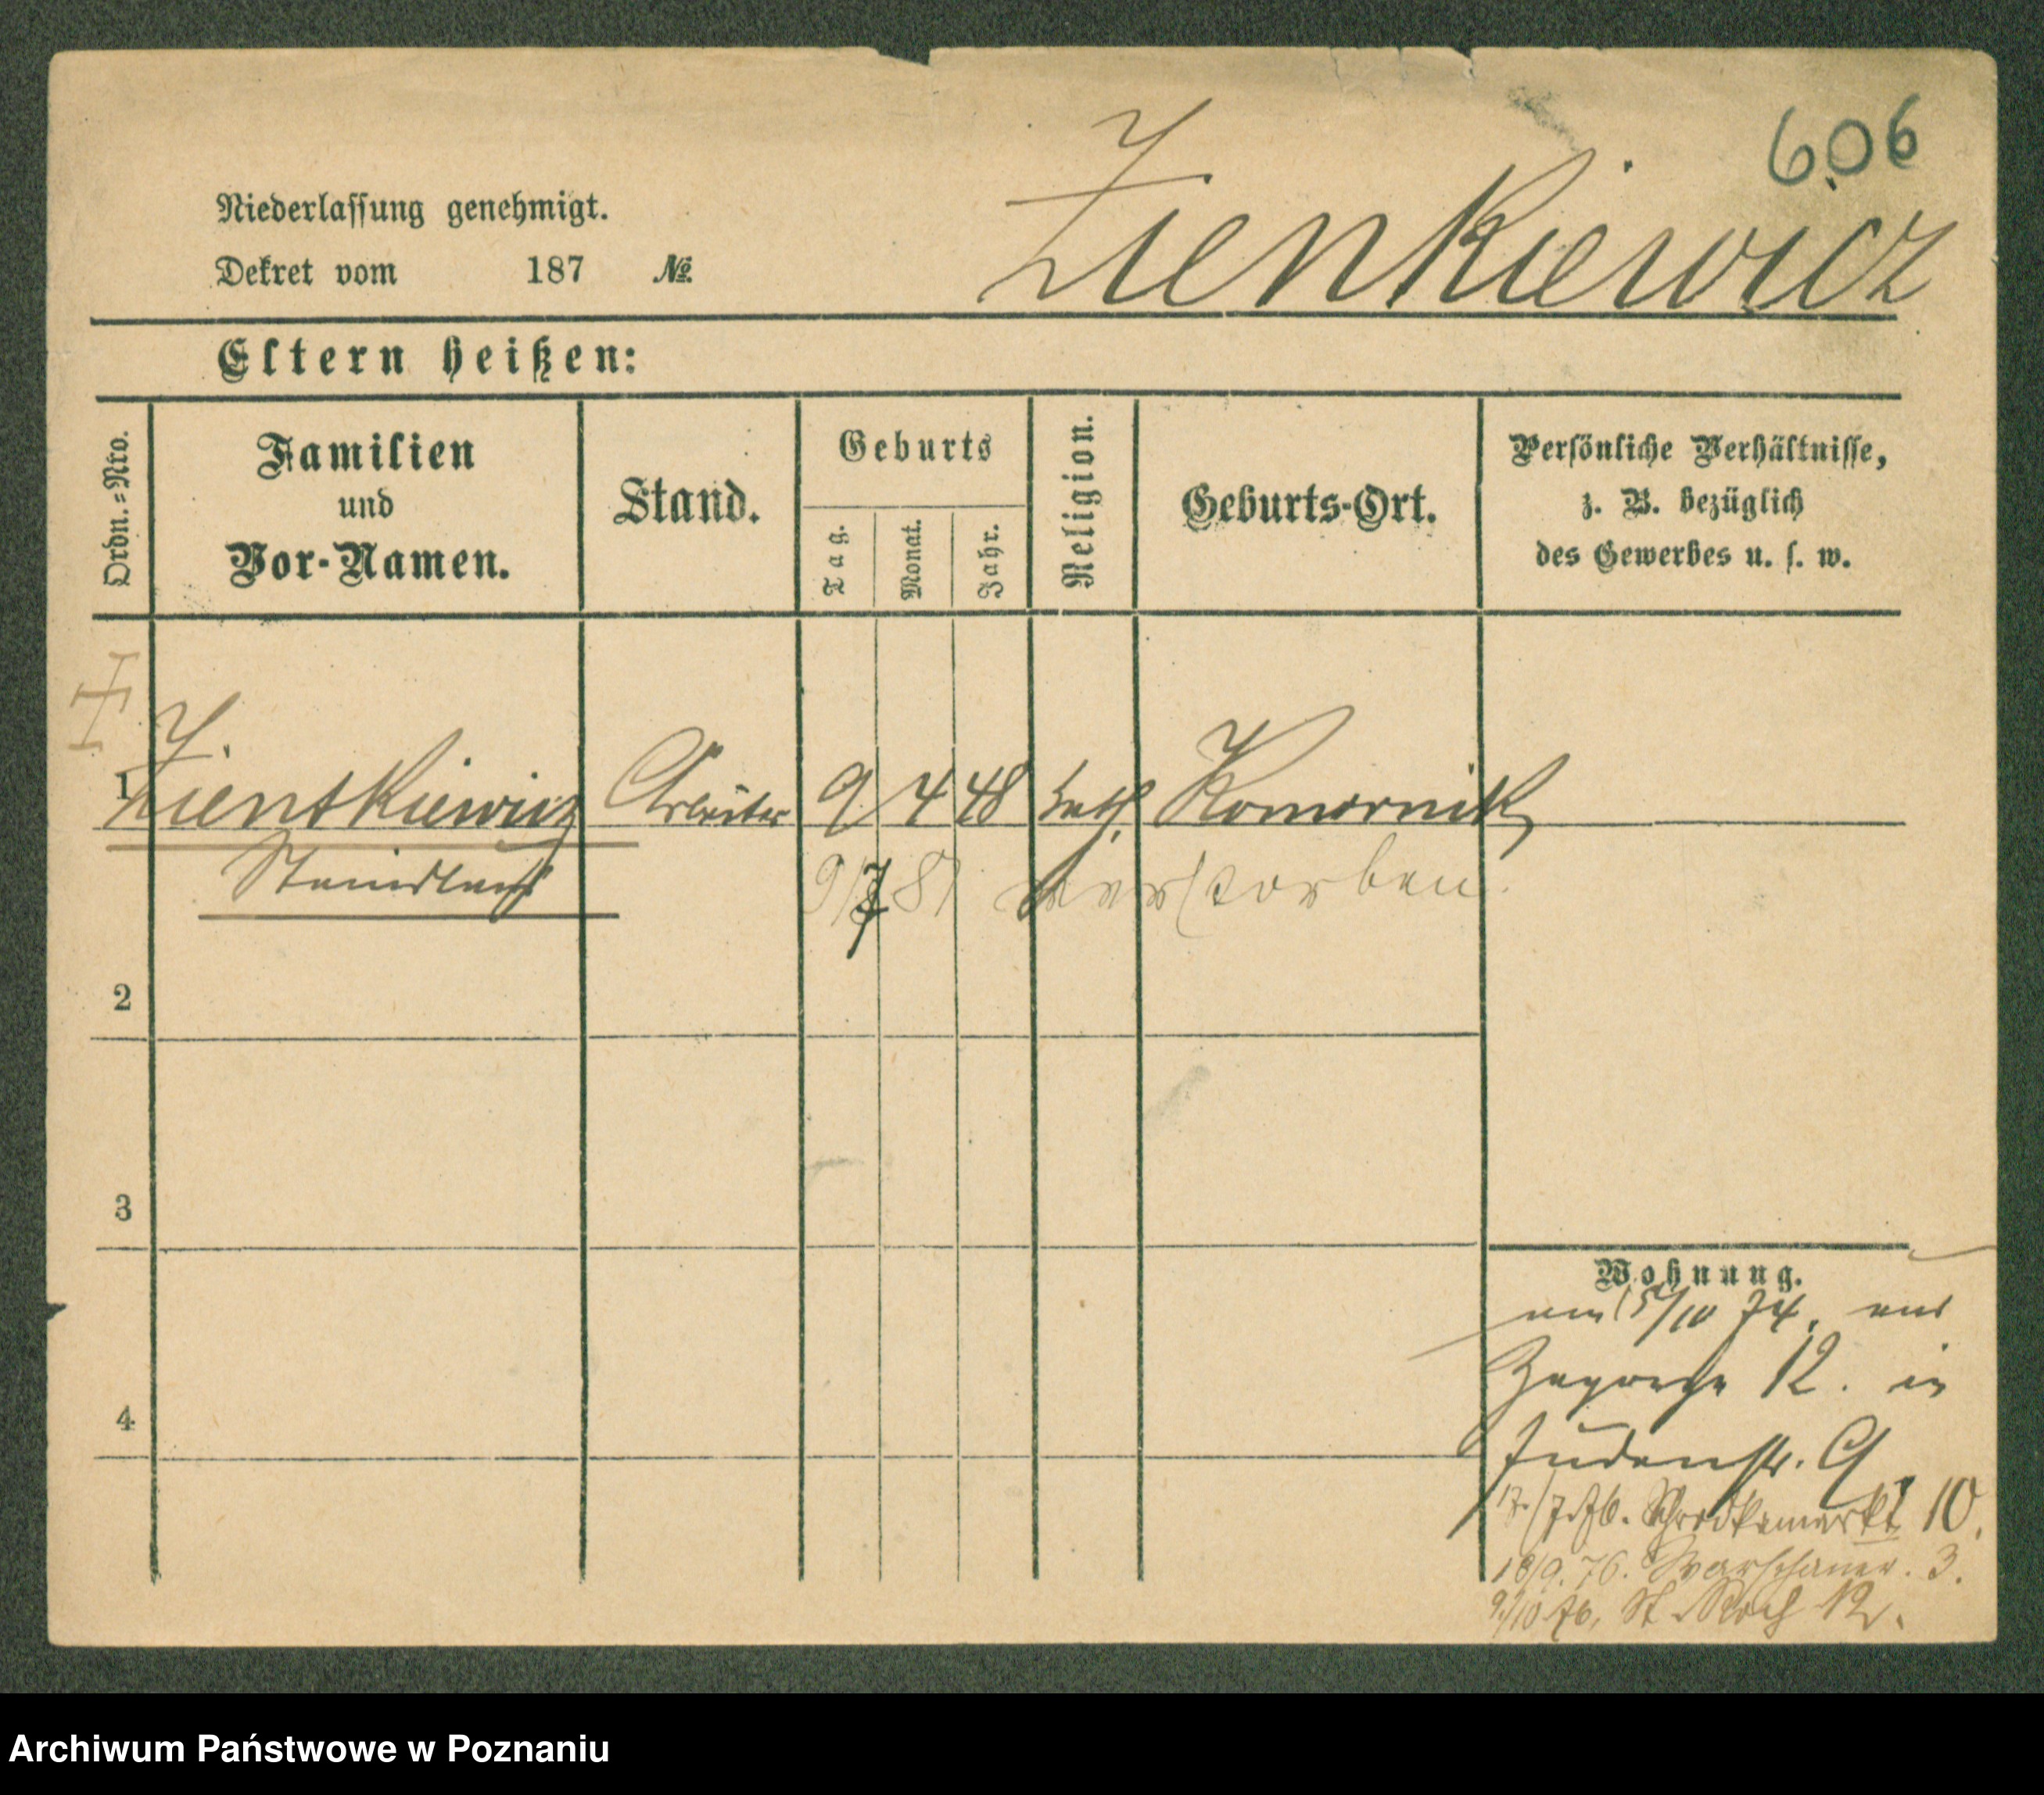 606
Zienkiewicz
Niederlassung genehmigt.
Dekret vom 187 №
Eltern heißen:
Ordn.=Nro.
Familien
und
Vor-Namen.
Stand.
Geburts
Tag.
Monat.
Jahr.
Religion.
Geburts-Ort.
Persönliche Verhältnisse,
z. B. bezüglich
des Gewerbes u. s. w.
1 Zientkiewicz Arbeiter 9 4 48 kath. Komornik
Stanislaus
9/7 81 verstorben.
2
3
4
Wohnung.
am 15/10 74. aus
Zagorze 12. in
Judenstr. 9
Schrodkamarkt 10.
18/9. 76. Warschauer. 3.
9/10 76, St Roch 12.
Archiwum Państwowe w Poznaniu